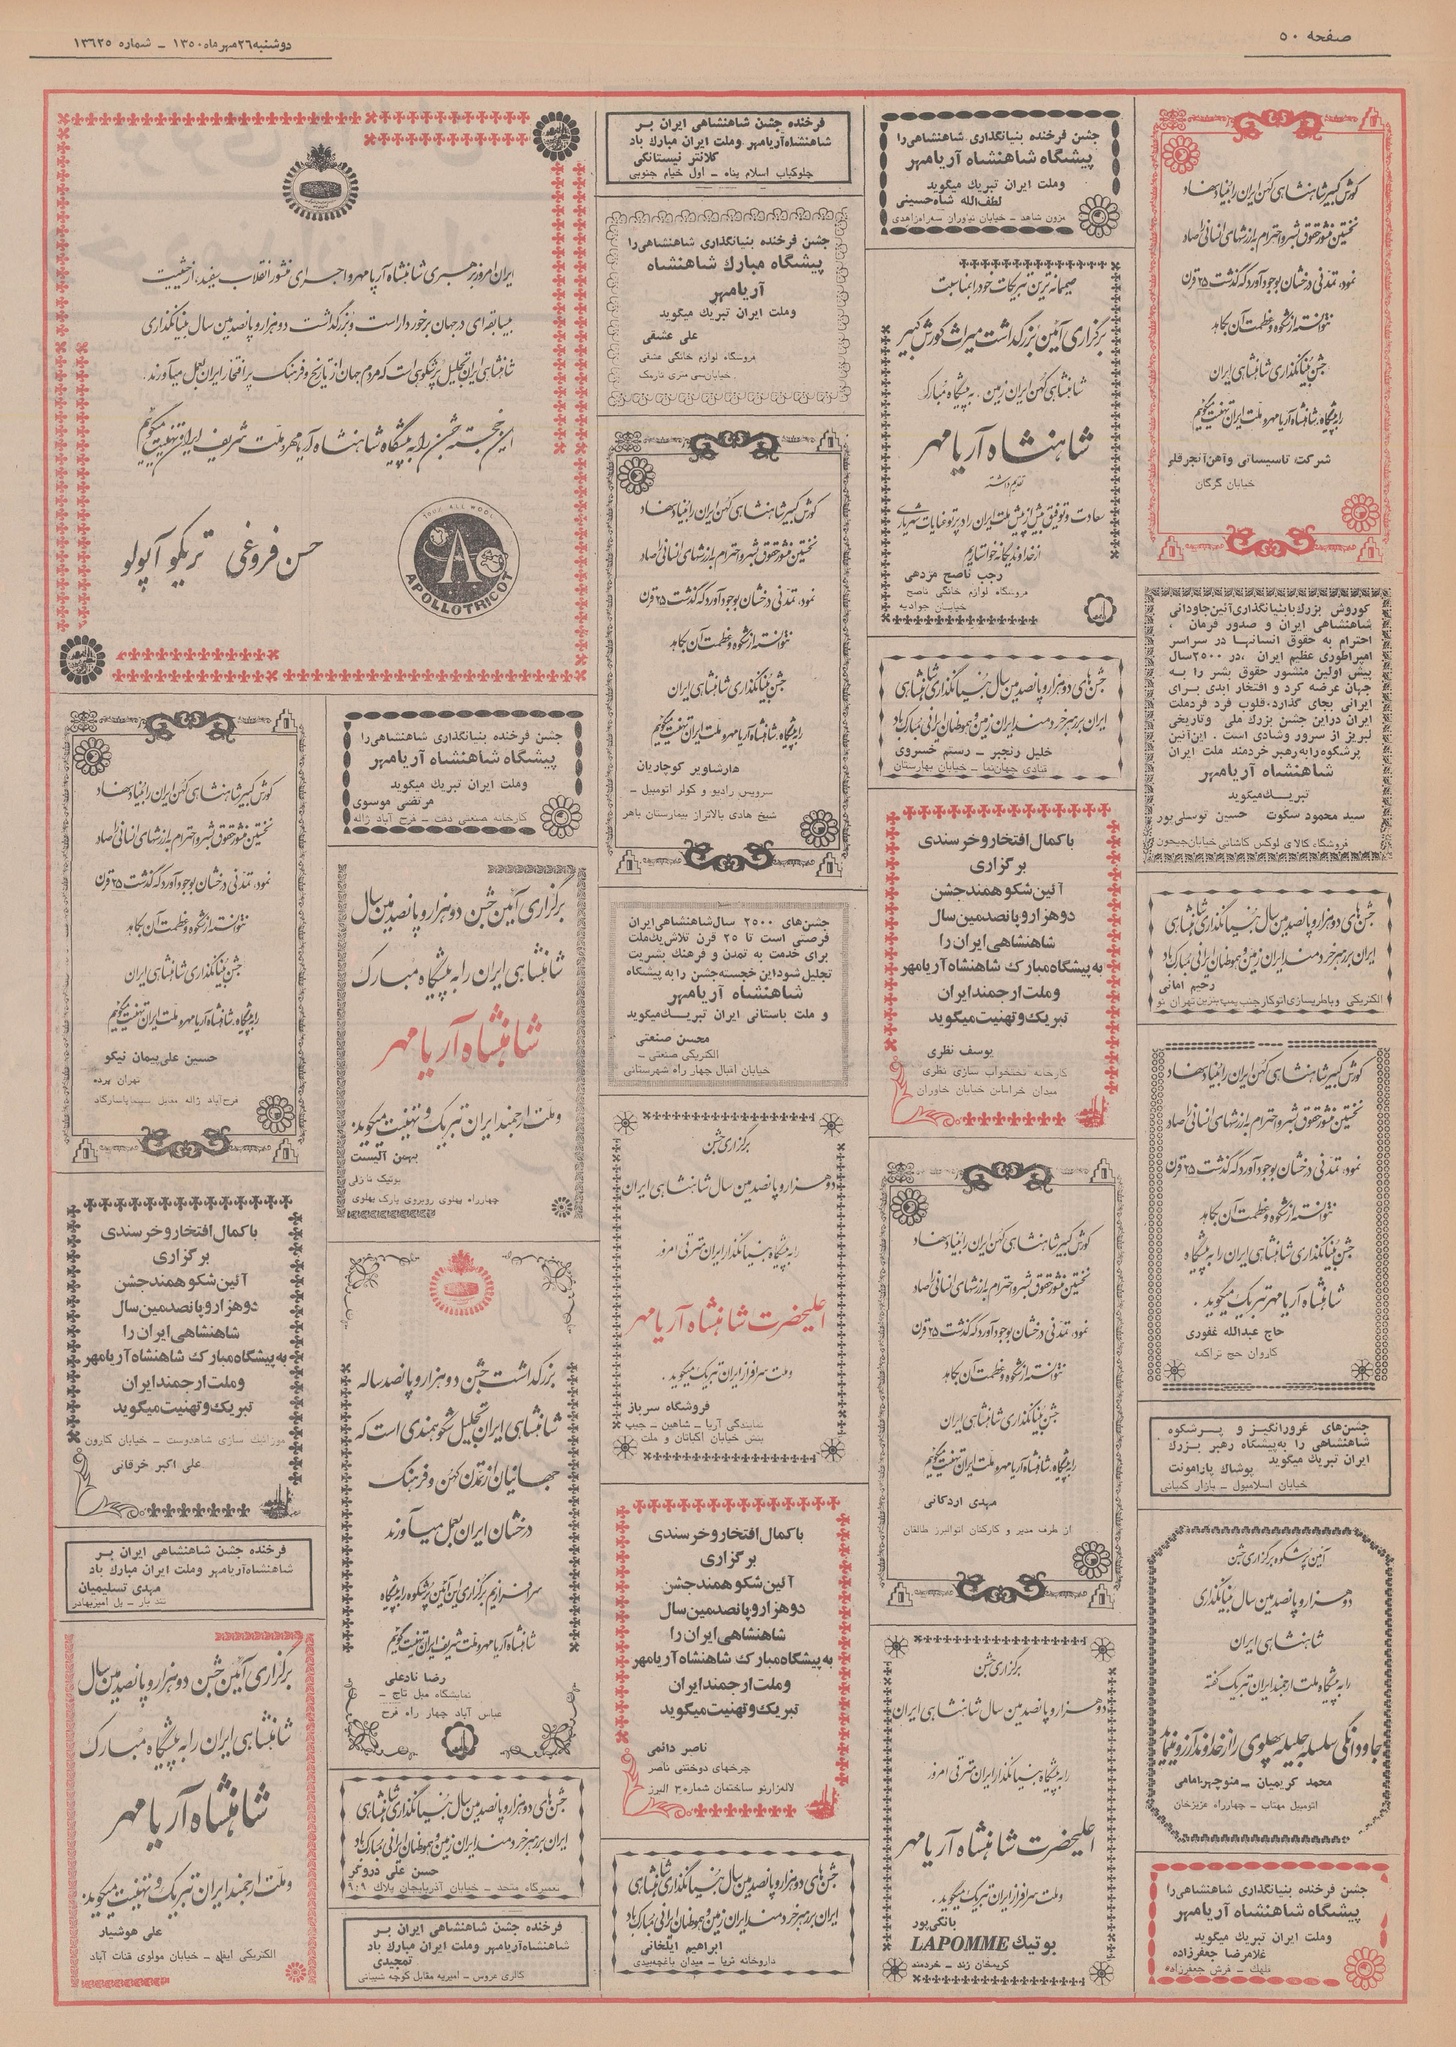 صفحه ۵۰
دوشنبه ۲۶ مهر ماه ۱۳۵۰ - شماره ۱۳۶۲۵
کورش کبیر شاهنشاهی کهن ایران را بنیاد نهاد
نخستین منشور حقوق بشر و احترام به ارزشهای انسانی را صادر
نمود، تمدنی درخشان بوجود آورد که گذشت ۲۵ قرن
نتوانسته از شکوه و عظمت آن بکاهد
جشن بنیانگذاری شاهنشاهی ایران
را به پیشگاه شاهنشاه آریامهر و ملت ایران تهنیت میگوئیم
شرکت تاسیساتی و آهن آنجرقلی
خیابان گرگان
کوروش بزرگ با بنیانگذاری آئین جاودانی
شاهنشاهی ایران و صدور فرمان ،
احترام به حقوق انسانها در سراسر
امپراطوری عظیم ایران ، در ۲۵۰۰ سال
پیش اولین منشور حقوق بشر را به
جهان عرضه کرد و افتخار ابدی برای
ایرانی بجای گذارد، قلوب فرد فرد ملت
ایران در این جشن بزرگ ملی و تاریخی
لبریز از سرور و شادی است . این آئین
پرشکوه را به رهبر خردمند ملت ایران
شاهنشاه آریامهر
تبریک میگوید
سید محمود سکوت حسین توسلی پور
فروشگاه کالای لوکس کاشانی خیابان جیحون
جشن های دو هزار و پانصدمین سال بنیانگذاری شاهنشاهی
ایران بر رهبر خردمند ایران زمین و هموطنان ایرانی مبارک باد
رحیم امانی
الکتریکی و باطریسازی اتوکار جنب پمپ بنزین تهران نو
کورش کبیر شاهنشاهی کهن ایران را بنیاد نهاد
نخستین منشور حقوق بشر و احترام به ارزشهای انسانی را صادر
نمود، تمدنی درخشان بوجود آورد که گذشت ۲۵ قرن
نتوانسته از شکوه و عظمت آن بکاهد
جشن بنیانگذاری شاهنشاهی ایران را به پیشگاه
شاهنشاه آریامهر تبریک میگوید .
حاج عبدالله غفوری
کاروان حج تراکمه
جشن‌های غرورانگیز و پرشکوه
شاهنشاهی را به پیشگاه رهبر بزرگ
ایران تبریک میگوید
پوشاک پارامونت
خیابان اسلامبول - بازار کمپانی
آئین پرشکوه برگزاری جشن
دو هزار و پانصدمین سال بنیانگذاری
شاهنشاهی ایران
را به پیشگاه ملت ارجمند ایران تبریک گفته
جاودانگی سلسله جلیله پهلوی را از خداوند آرزو مینماید
محمد کریمیان - منوچهر امامی
اتومبیل مهتاب - چهارراه عزیزخان
جشن فرخنده بنیانگذاری شاهنشاهی را
پیشگاه شاهنشاه آریامهر
و ملت ایران تبریک میگوید
غلامرضا جعفرزاده
قلهک - فرش جعفرزاده
جشن فرخنده بنیانگذاری شاهنشاهی را
پیشگاه شاهنشاه آریامهر
و ملت ایران تبریک میگوید
لطف‌الله شاه‌حسینی
مزون شاهد - خیابان نیاوران سه‌راه زاهدی
صمیمانه ترین تبریکات خود را بمناسبت
برگزاری آئین بزرگداشت میراث کورش کبیر
شاهنشاهی کهن ایران زمین ، به پیشگاه مبارک
شاهنشاه آریامهر
تقدیم داشته
سعادت و توفیق بیش از پیش ملت ایران را در پرتو عنایات شهریاری
از خداوند یگانه خواستاریم
رجب ناصح مزدهی
فروشگاه لوازم خانگی ناصح
خیابان جوادیه
جشن های دو هزار و پانصدمین سال بنیانگذاری شاهنشاهی
ایران بر رهبر خردمند ایران زمین و هموطنان ایرانی مبارک باد
خلیل رنجبر - رستم خسروی
قنادی جهان‌نما - خیابان بهارستان
با کمال افتخار و خرسندی
برگزاری
آئین شکوهمند جشن
دو هزار و پانصدمین سال
شاهنشاهی ایران را
به پیشگاه مبارک شاهنشاه آریامهر
و ملت ارجمند ایران
تبریک و تهنیت میگوید
یوسف نظری
کارخانه تختخواب سازی نظری
میدان خراسان خیابان خاوران
کورش کبیر شاهنشاهی کهن ایران را بنیاد نهاد
نخستین منشور حقوق بشر و احترام به ارزشهای انسانی را صادر
نمود، تمدنی درخشان بوجود آورد که گذشت ۲۵ قرن
نتوانسته از شکوه و عظمت آن بکاهد
جشن بنیانگذاری شاهنشاهی ایران
را به پیشگاه شاهنشاه آریامهر و ملت ایران تهنیت میگوئیم
مهدی اردکانی
از طرف مدیر و کارکنان اتوالبرز طالقان
برگزاری جشن
دو هزار و پانصدمین سال شاهنشاهی ایران
را به پیشگاه بنیانگذار ایران مترقی امروز
اعلیحضرت شاهنشاه آریامهر
و ملت سرافراز ایران تبریک میگوید .
بانکی‌پور
بوتیک LAPOMME
کریمخان زند - خردمند
فرخنده جشن شاهنشاهی ایران بر
شاهنشاه آریامهر و ملت ایران مبارک باد
کلانتر نیستانکی
چلوکباب اسلام پناه - اول خیام جنوبی
جشن فرخنده بنیانگذاری شاهنشاهی را
پیشگاه مبارک شاهنشاه
آریامهر
و ملت ایران تبریک میگوید
علی عشقی
فروشگاه لوازم خانگی عشقی
خیابان سی متری نارمک
کورش کبیر شاهنشاهی کهن ایران را بنیاد نهاد
نخستین منشور حقوق بشر و احترام به ارزشهای انسانی را صادر
نمود، تمدنی درخشان بوجود آورد که گذشت ۲۵ قرن
نتوانسته از شکوه و عظمت آن بکاهد
جشن بنیانگذاری شاهنشاهی ایران
را به پیشگاه شاهنشاه آریامهر و ملت ایران تهنیت میگوئیم
هارشاویر کوچاریان
سرویس رادیو و کولر اتومبیل -
شیخ هادی بالاتر از بیمارستان باهر
جشن‌های ۲۵۰۰ سال شاهنشاهی ایران
فرصتی است تا ۲۵ قرن تلاش یک ملت
برای خدمت به تمدن و فرهنگ بشریت
تجلیل شود این خجسته جشن را به پیشگاه
شاهنشاه آریامهر
و ملت باستانی ایران تبریک میگوید
محسن صنعتی
الکتریکی صنعتی -
خیابان اقبال چهار راه شهرستانی
برگزاری جشن
دو هزار و پانصدمین سال شاهنشاهی ایران
را به پیشگاه بنیانگذار ایران مترقی امروز
اعلیحضرت شاهنشاه آریامهر
و ملت سرافراز ایران تبریک میگوید .
فروشگاه سرباز
نمایندگی آریا - شاهین - جیپ
بنش خیابان اکباتان و ملت
با کمال افتخار و خرسندی
برگزاری
آئین شکوهمند جشن
دو هزار و پانصدمین سال
شاهنشاهی ایران را
به پیشگاه مبارک شاهنشاه آریامهر
و ملت ارجمند ایران
تبریک و تهنیت میگوید
ناصر دائمی
چرخهای دوختنی ناصر
لاله‌زارنو ساختمان شماره ۳ البرز
جشن های دو هزار و پانصدمین سال بنیانگذاری شاهنشاهی
ایران بر رهبر خردمند ایران زمین و هموطنان ایرانی مبارک باد
ابراهیم ایلخانی
داروخانه ثریا - میدان باغچه‌بیدی
ایران امروز برهبری شاهنشاه آریامهر و اجرای منشور انقلاب سپید ، از حیثیت
بیسابقه ای در جهان برخوردار است و بزرگداشت دو هزار و پانصدمین سال بنیانگذاری
شاهنشاهی ایران تجلیل پرشکوهی است که مردم جهان از تاریخ و فرهنگ پر افتخار ایران بعمل میآورند .
این خجسته جشن را به پیشگاه شاهنشاه آریامهر و ملت شریف ایران تهنیت میگوئیم
حسن فروغی تریکو آپولو
100% ALL WOOL
A
APOLLOTRICOT
جشن فرخنده بنیانگذاری شاهنشاهی را
پیشگاه شاهنشاه آریامهر
و ملت ایران تبریک میگوید
مرتضی موسوی
کارخانه صنعتی دقت - فرح آباد ژاله
برگزاری آئین جشن دو هزار و پانصدمین سال
شاهنشاهی ایران را به پیشگاه مبارک
شاهنشاه آریامهر
و ملت ارجمند ایران تبریک و تهنیت میگوید.
بهمن آلیست
بوتیک نازلی
چهارراه پهلوی روبروی پارک پهلوی
بزرگداشت جشن دو هزار و پانصد ساله
شاهنشاهی ایران تجلیل شکوهمندی است که
جهانیان از تمدن کهن و فرهنگ
درخشان ایران بعمل میآورند
سرافرازیم برگزاری این آئین پرشکوه را به پیشگاه
شاهنشاه آریامهر و ملت شریف ایران تهنیت گوئیم
رضا نادعلی
نمایشگاه مبل تاج -
عباس آباد چهار راه فرح
جشن های دو هزار و پانصدمین سال بنیانگذاری شاهنشاهی
ایران بر رهبر خردمند ایران زمین و هموطنان ایرانی مبارک باد
حسن علی دروگر
تعمیرگاه متحد - خیابان آذربایجان پلاک ۹۰۹
فرخنده جشن شاهنشاهی ایران بر
شاهنشاه آریامهر و ملت ایران مبارک باد
تمجیدی
گالری عروس - امیریه مقابل کوچه شیبانی
کورش کبیر شاهنشاهی کهن ایران را بنیاد نهاد
نخستین منشور حقوق بشر و احترام به ارزشهای انسانی را صادر
نمود، تمدنی درخشان بوجود آورد که گذشت ۲۵ قرن
نتوانسته از شکوه و عظمت آن بکاهد
جشن بنیانگذاری شاهنشاهی ایران
را به پیشگاه شاهنشاه آریامهر و ملت ایران تهنیت میگوئیم
حسین علی پیمان نیکو
تهران پرده
فرح‌آباد ژاله مقابل سینما پاسارگاد
با کمال افتخار و خرسندی
برگزاری
آئین شکوهمند جشن
دو هزار و پانصدمین سال
شاهنشاهی ایران را
به پیشگاه مبارک شاهنشاه آریامهر
و ملت ارجمند ایران
تبریک و تهنیت میگوید
موزائیک سازی شاهدوست - خیابان کارون
علی اکبر خرقانی
فرخنده جشن شاهنشاهی ایران بر
شاهنشاه آریامهر و ملت ایران مبارک باد
مهدی تسلیمیان
تند بار - پل امیربهادر
برگزاری آئین جشن دو هزار و پانصدمین سال
شاهنشاهی ایران را به پیشگاه مبارک
شاهنشاه آریامهر
و ملت ارجمند ایران تبریک و تهنیت میگوید.
علی هوشیار
الکتریکی ایفل - خیابان مولوی قنات آباد